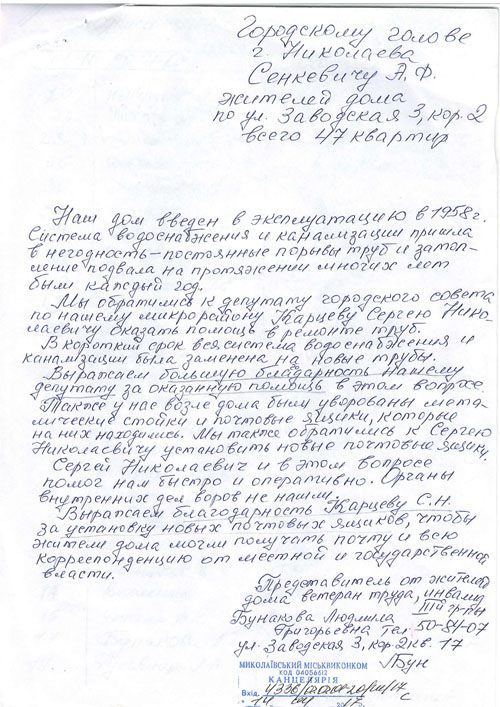 Городскому голове
г. Николаева
Сенкевичу А.Ф.
жителей дома
по ул. Заводская 3, кор. 2
всего 47 квартир
Наш дом введен в эксплуатацию в 1958г.
Система водоснабжения и канализации пришла
в негодность – постоянные порывы труб и затоп-
ление подвала на протяжении многих лет
был каждый год.
Мы обратились к депутату городского совета
по нашему микрорайону Карцеву Сергею Нико-
лаевичу оказать помощь в ремонте труб.
В короткий срок вся система водоснабжения и
канализации была заменена на новые трубы.
Выражаем большую благодарность нашему
депутату за оказанную помощь в этом вопросе.
Также у нас возле дома были уворованы мета-
лические стойки и почтовые ящики, которые
на них находились. Мы также обратились к Сергею
Николаевичу установить новые почтовые ящики.
Сергей Николаевич и в этом вопросе
помог нам быстро и оперативно. Органы
внутренних дел воров не нашли.
Выражаем благодарность Карцеву С.Н.
за установку новых почтовых ящиков, чтобы
жители дома могли получать почту и всю
корреспонденцию от местной и государственной
власти.
Представитель от жителей
дома ветеран труда, инвалид
III гр-пы
Бунакова Людмила
Григорьевна Тел. 50-84-07
ул. Заводская 3, кор. 2 кв. 17
Бун
МИКОЛАЇВСЬКИЙ МІСЬКВИКОНКОМ
КОД 04056612
КАНЦЕЛЯРІЯ
Вхід.